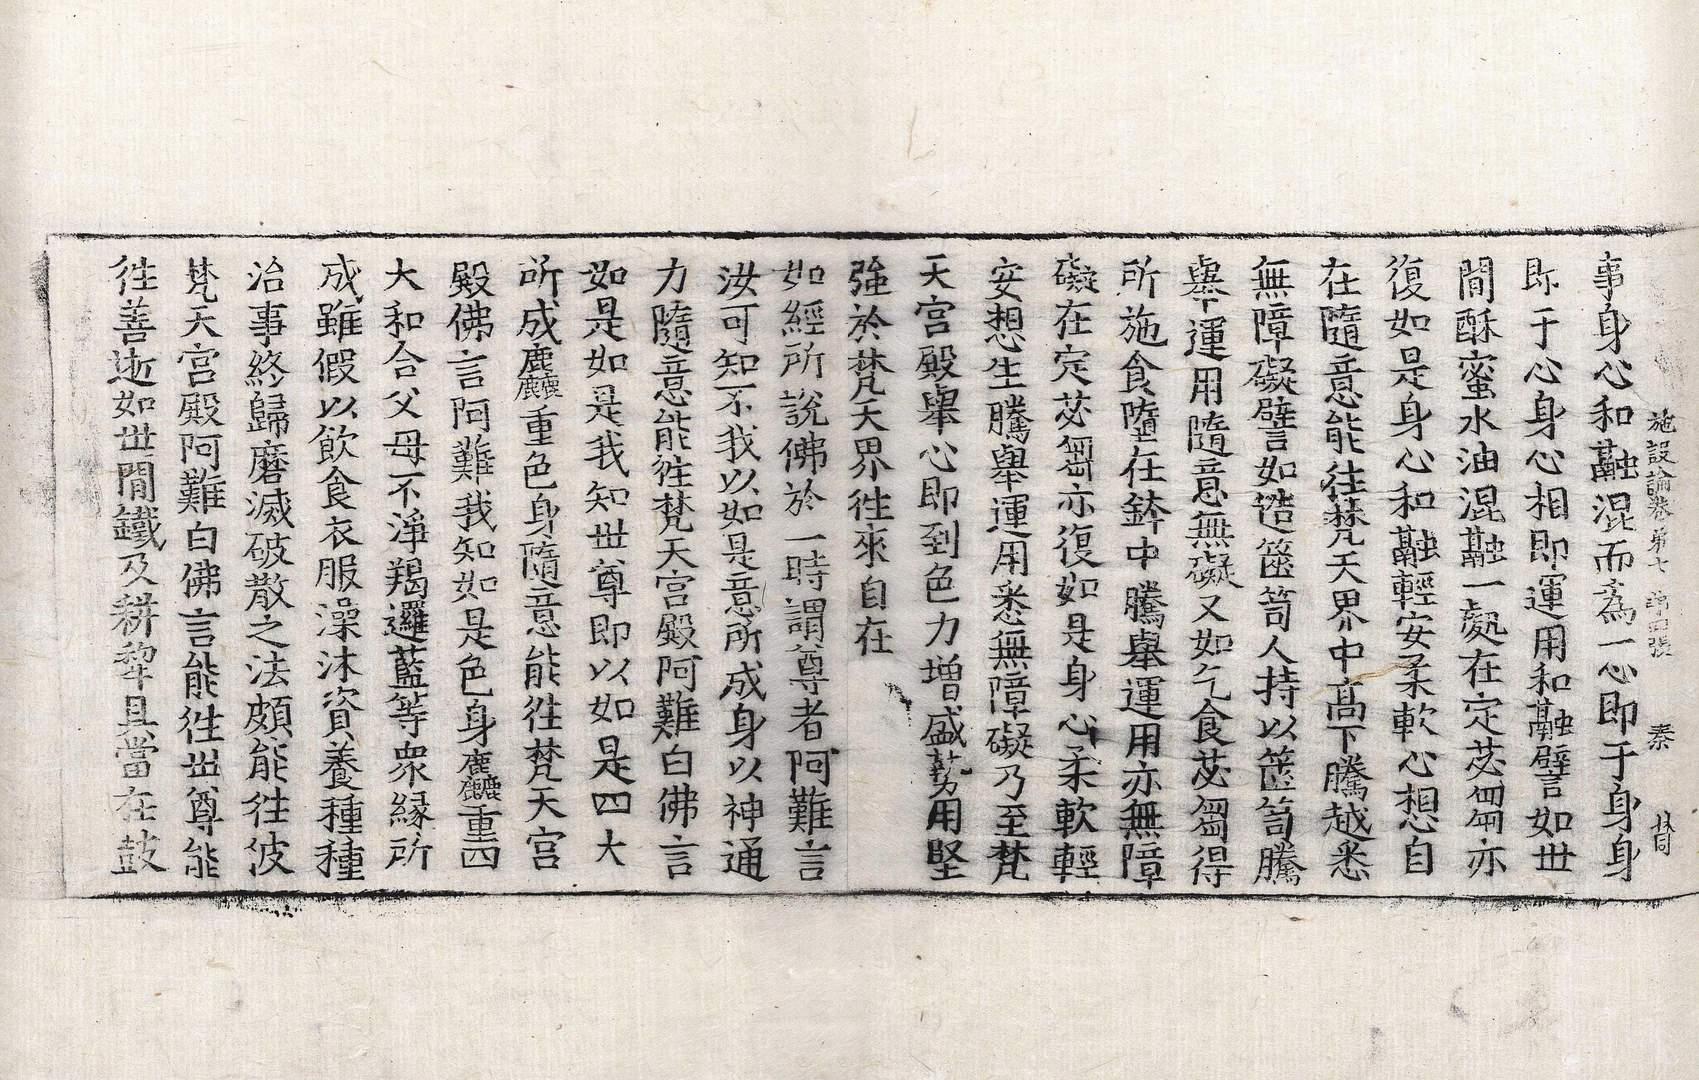 施設論卷第七 第四張 秦
事身心和融混而為一心即于身身
即于心身心相即運用和融譬如世
間酥蜜水油混融一處在定苾芻亦
復如是身心和融輕安柔軟心想自
在隨意能徃梵天界中高下騰越悉
無障礙譬如造篋笥人持以篋笥騰
舉運用隨意無礙又如乞食苾芻得
所施食墮在鉢中騰舉運用亦無障
礙在定苾芻亦復如是身心柔軟輕
安想生騰舉運用悉無障礙乃至梵
天宮殿舉心即到色力增盛勢用堅
強於梵天界徃來自在
如經所說佛於一時謂尊者阿難言
汝可知不我以如是意所成身以神通
力隨意能徃梵天宮殿阿難白佛言
如是如是我知世尊即以如是四大
所成麤重色身隨意能徃梵天宮
殿佛言阿難我知如是色身麤重四
大和合父母不淨羯邏藍等衆緣所
成雖假以飲食衣服澡沐資養種種
治事終歸磨滅破散之法頗能徃彼
梵天宮殿阿難白佛言能徃世尊能
徃善逝如世間鐵及耕犂具當在鼓